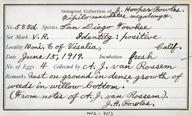 Oological Collection of J. Hooper Bowles.
Pipilo maculatus megalonyx.
No. 588d San Diego Towhee
Set Mark V.R. Identity: positive
Locality 4 mi. E of Visalia, Calif.
Date June 15, 1919. Incubation fresh
No. of Eggs 4 Collected by A. J. van Rossem
Remarks: Nest on ground in dense growth of
weeds in willow bottom.
(From notes of A. J. van Rossem).
J. H. Bowles.